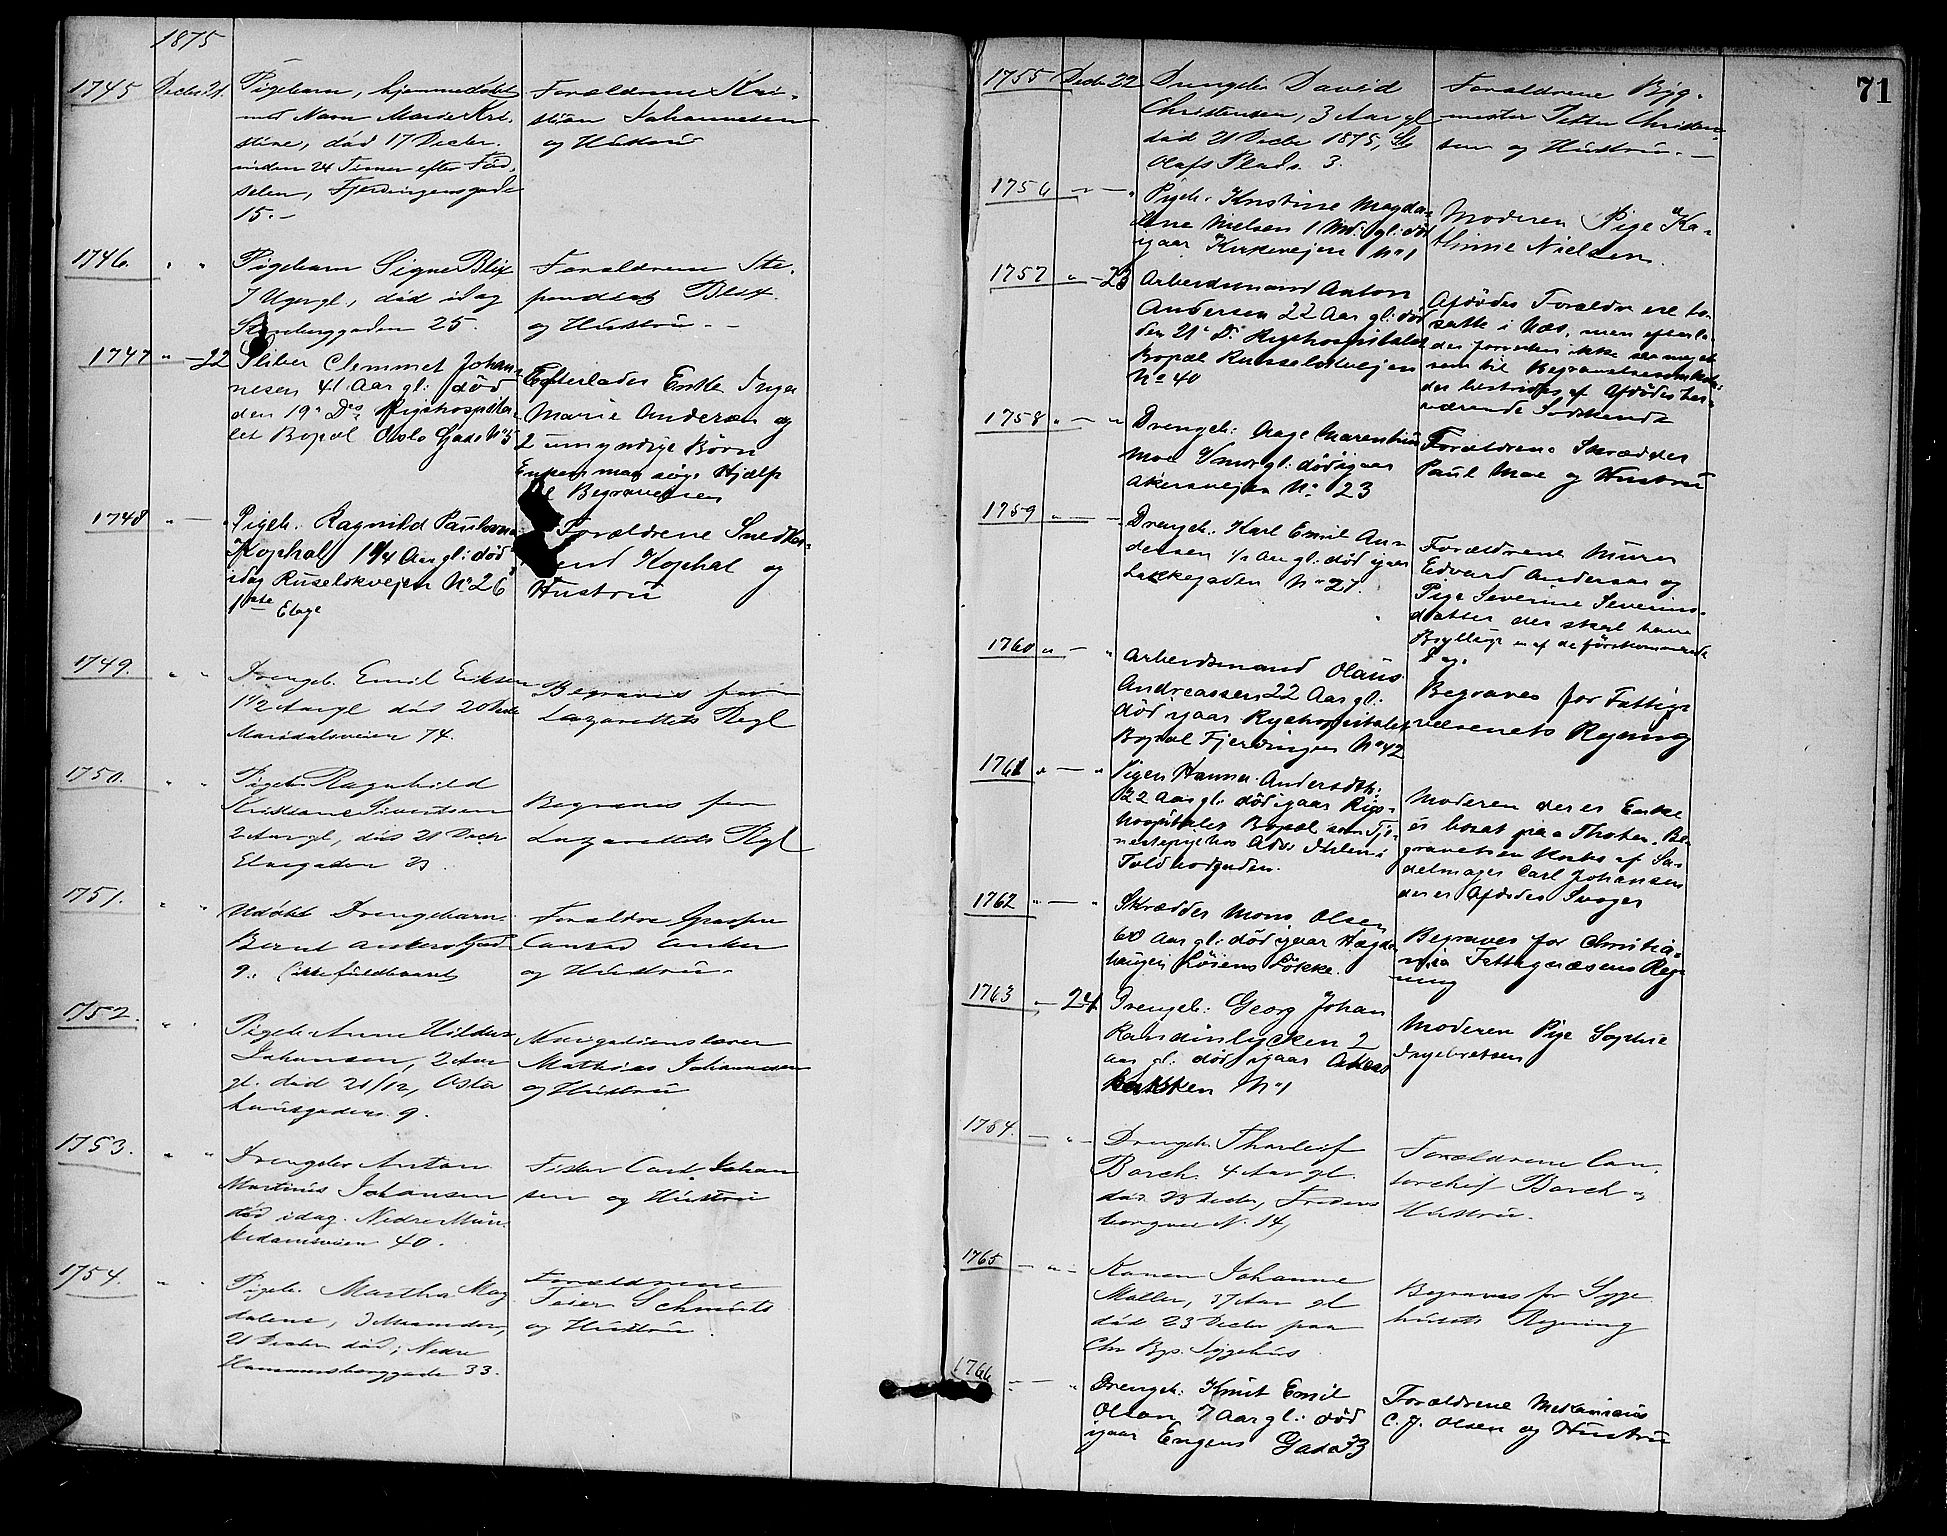 1875
1745 Decbr 21. Pigebarn, hjemmedøbt
med Navn Marie Kri-
stine, død 17 Decbr.
inden 24 Timer efter Fød-
selen, Fjerdingensgade
15.-
Forældrene Kri-
stian Johannesen
og Hustru
1746. " " Pigebarn Signe Blix
7 Uger gl, død idag
25.
Forældrene Ste-
Blix
og Hustru. -
1747 " - 22 Sliber Clemmet Johan-
nesen 41 Aar gl: død
den 19de Ds Rigshospita-
let Bopæl Oslo Gade No 5
Efterlader Enke Inga
Marie Andersen og
2 umyndige Børn
Enken maa søge Hjælp
til Begravelsen
1748 " - " Pigeb. Ragnild
Kophal 1 1/4 Aar gl: død
idag Ruseløkvejen No 26
1ste Etage
Forældrene Snedker
Kophal og
Hustru
1749. " " Drengeb. Emil Eriksen
1 1/2 Aar gl død 20 Decbr
Maridalsveien 74.
Begraves for
Lazarettets Regl
1750. " " Pigeb. Ragnhild
Kristiane Sivertsen
2 Aar gl, død 21 Decbr
Elvegaden 13.
Begraves for
Lazarettets Rgl
1751. " " Udøbt Drengebarn.
Bernt Ankers Gade
9. (ikke fuldbaaret
Forældre
Conrad Anker
og Hustru.
1752. " " Pigeb. Anne Hilda
Johansen, 2 Aar
gl. død 21/12, Oster
hausgaden 9.
Navigationslærer
Mathias Johannesen
og Hustru
1753. " " Drengeb. Anton
Martinus Johansen
død idag. Nedre
40.
Fisker Carl Johan
sen og Hustru
1754. " " Pigeb. Martha Mag
dalene, 3 Maaneder,
21 Decbr død, Nedre
Hammersborggade 33.
Forældrene
Schmidt
og Hustru.
71
1755 Decbr 22 Drengeb. David
Christensen, 3 Aar gl
død 21 Decbr 1875, St
Olafs Plads. 3.
Forældrene Byg-
mester Petter Christen-
sen og Hustru. -
1756 " - " Pigeb. Kristine Magda-
lene Nielsen 1 Md. gl: død
igaar Kirkevejen No 1
Moderen Pige Ka-
thinne Nielsen.
1757 " - 23 Arbeidsmand Anton
Andersen 22 Aar gl: død
den 21de Ds Rigshospitalet
Bopæl Ruseløkvejen
No 40
Afdødes Forældre ere bo-
satte i Næs, men efterla-
der forresten ikke saa meget
som til Begravelsesomkost.
der bestrides af Afdødes her-
værende Sødskende
1758 " - " Drengeb: Aage Marentius
Moe gl: død igaar
Akersvejen No 23
Forældrene Skrædder
Paul Moe og Hustru
1759 " - " Drengeb: Karl Emil An-
dersen 1/2 Aar gl: død igaar
Lakkegaden No 27.
Forældrene Murer
Edvard Andersen og
Pige Severine Severins-
datter der skal have
Bryllup en af de førstkommende
Dage.
1760 " - " Arbeidsmand Olaus
Andreassen 22 Aar gl:
død igaar Rigshospitalet
Bopæl Fjerdingen No 42
Begraves for Fattig-
væsenets Regning
1761 " - " Pigen Hanna Andersdtr:
22 Aar gl: død igaar Rigs-
hospitalet Bopæl som Tje-
nestepige hos Adv: Ihlen i
Toldbodgaden.
Moderen der er Enke
er bosat paa Thoten. Be-
gravelsen kostes af Sa-
delmager Carl Johansen
der er Afdødes Svoger
1762 " - " Skrædder Mons Olsen
60 Aar gl: død igaar Hægde
haugen Løkke.
Begraves for Christia-
nia Fattigvæsens Reg-
ning
1763 " - 24 Drengeb: Georg Johan
2
Aar gl: død igaar Akers
No 1
Moderen Pige Sophie
Ingebretsen
1764. - " - Drengeb. Thorleif
Borch. 4 Aar gl.
død 23 Decbr, Frederens
borgvei N. 14,
Forældrene Con-
torchef Borch og
Hustru.
1765 - " - Konen Johanne
Møller, 37 Aar gl
død 23 Decbr paa
Chr Bys Sygehus.
Begraves for Syge
husets Regning
1766 - " Drengeb: Knut Emil
Olsen 7 Aar gl: død
igaar Engens Gade 33
Forældrene Mekanicus
C. J. Olsen og Hustru